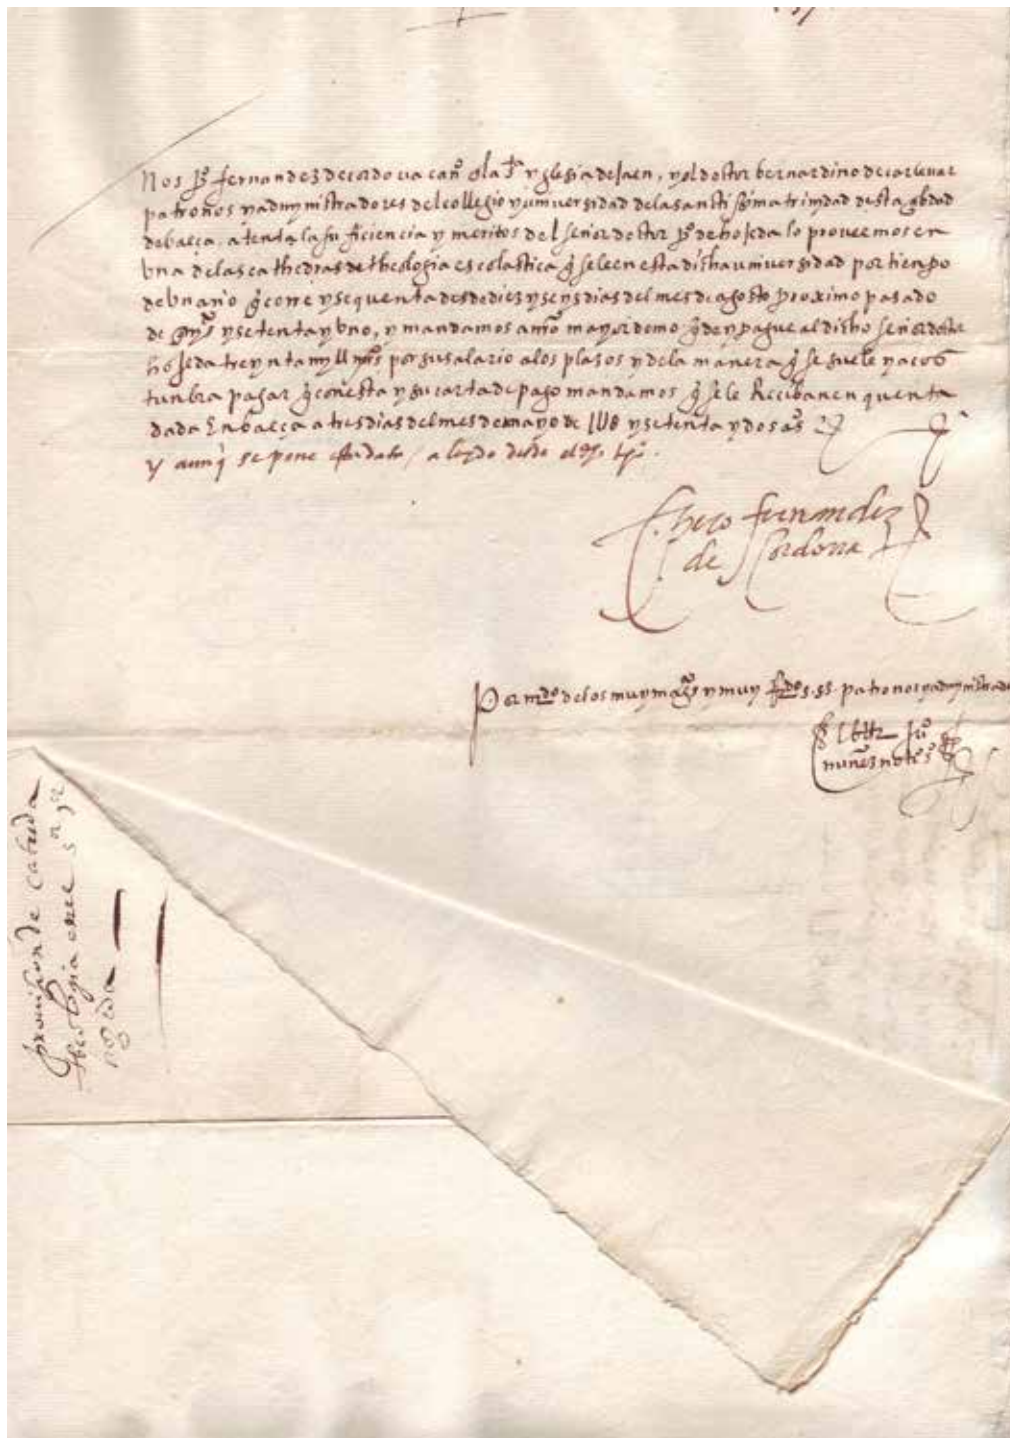 Nos po fernandez de cordova cano de la sta yglesia de Jaen, y el doctor bernardino de carlevar
patronos y administradores del collegio y universidad de la sanctissima trinydad desta
de baeça. atenta la sufficiencia y meritos del señor doctor po de hojeda lo proveemos en
una de las cathedras de theologia escolastica q se lee en esta dicha universidad por tienpo
de un año q corre y se quenta desde diez y seys dias del mes de agosto proximo pasado
de y setenta y uno, y mandamos a mayordomo q de y pague al dicho señor doctor
hojeda treynta myll mrs por su salario a los plazos y de la manera q se suele y acos
tunbra pagar q con esta y su carta de pago mandamos q se le Reciban en quenta
dada En baeça a tres dias del mes de mayo de y setenta y dos as
y aunq se pone
Pero fernandez
de Cordova
Por mdo de los muy magcos y muy Rdos s.ss. patronos y administrado
nuñez noto
provision de catreda
theologia en el sor